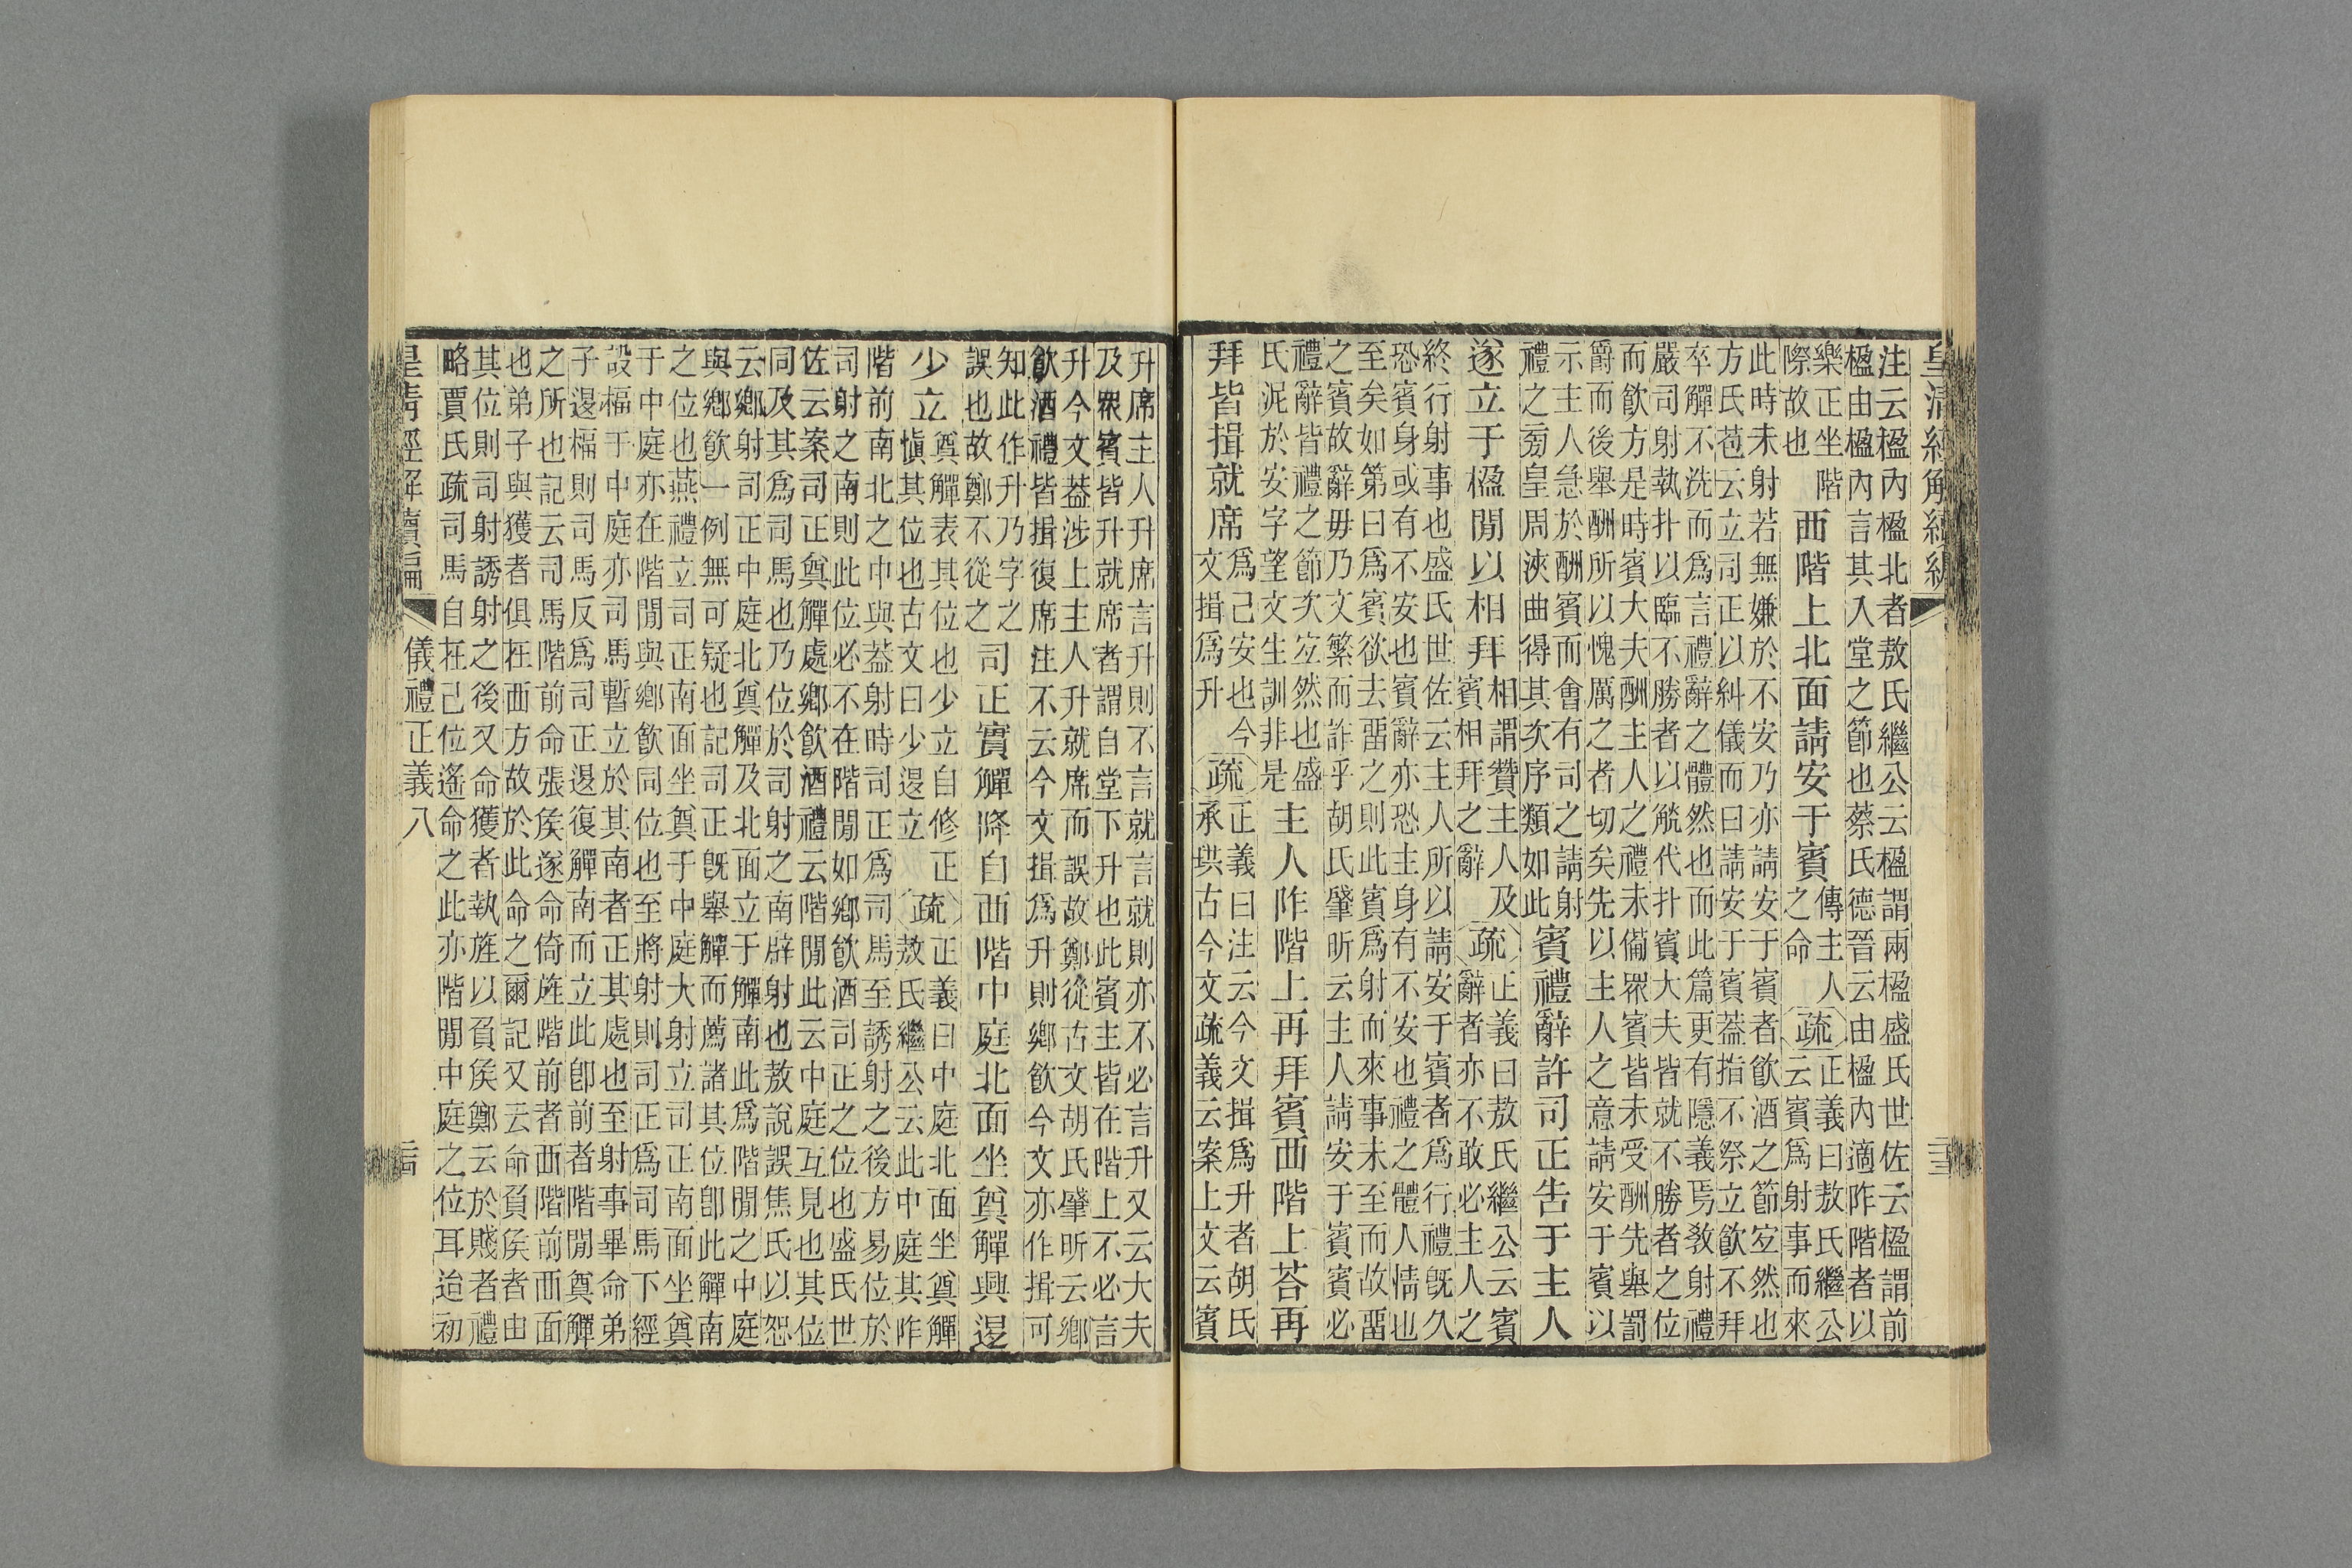 皇清經解續編
注云楹內楹北者敖氏繼公云楹謂兩楹盛氏世佐云楹謂前
楹由楹內言其入堂之節也蔡氏德晉云由楹內適阼階者以
樂正坐階
際故也
西階上北面請安于賓
傳主人
之命
疏
正義曰敖氏繼公
云賓爲射事而來
此時未射若無嫌於不安乃亦請安于賓者飲酒之節宜然也
方氏苞云立司正以糾儀而曰請安于賓葢指不祭立飲不拜
卒觶不洗而爲言禮辭之體然也而此篇更有隱義焉教射禮
嚴司射執扑以臨不勝者以觥代扑賓大夫皆就不勝者之位
而飲方是時賓大夫酬主人之禮未僃眾賓皆未受酬先舉罰
爵而後舉酬所以愧厲之者切矣先以主人之意請安于賓以
示主人急於酬賓而會有司之請射
禮之旁皇周浹曲得其次序類如此
賓禮辭許司正告于主人
遂立于楹閒以相拜
相謂贊主人及
賓相拜之辭
疏
正義曰敖氏繼公云賓
辭者亦不敢必主人之
終行射事也盛氏世佐云主人所以請安于賓者爲行禮旣久
恐賓身或有不安也賓辭亦恐主身有不安也禮之體人情也
至矣如第曰爲賓欲去畱之則此賓爲射而來事未至而故畱
之賓故辭毋乃文繁而詐乎胡氏肇昕云主人請安于賓賓必
禮辭皆禮之節次宜然也盛
氏泥於安字望文生訓非是
主人阼階上再拜賓西階上荅再
拜皆揖就席
爲己安也今
文揖爲升
疏
正義曰注云今文揖爲升者胡氏
承珙古今文疏義云案上文云賓
二三
升席主人升席言升則不言就言就則亦不必言升又云大夫
及眾賓皆升就席者謂自堂下升也此賓主皆在階上不必言
升今文葢涉上主人升就席而誤故鄭從古文胡氏肇昕云鄉
飲酒禮皆揖復席注不云今文揖爲升則鄉飲今文亦作揖可
知此作升乃字之
誤也故鄭不從之
司正實觶降自西階中庭北面坐奠觶興退
少立
奠觶表其位也少立自修正
慎其位也古文曰少退立
疏
正義曰中庭北面坐奠觶
敖氏繼公云此中庭其阼
階前南北之中與葢射時司正爲司馬至誘射之後方易位於
司射之南則此位必不在階閒如鄉飲酒司正之位也盛氏世
佐云案司正奠觶處鄉飲酒禮云階閒此云中庭互見也其位
同及其爲司馬也乃位於司射之南辟射也敖說誤焦氏以恕
云鄉射司正中庭北奠觶及北面立于觶南此爲階閒之中庭
與鄉飲一例無可疑也記司正旣舉觶而薦諸其位卽此觶南
之位也燕禮立司正南面坐奠于中庭大射立司正南面坐奠
于中庭亦在階閒與鄉飲同位也至將射則司正爲司馬下經
設楅于中庭亦司馬暫立於其南者正其處也至射事畢命弟
子退楅則司馬反爲司正退復觶南而立此卽前者階閒奠觶
之所也記云司馬階前命張侯遂命倚旌階前者西階前西面
也弟子與獲者俱在西方故於此命之爾記又云命負侯者由
其位則司射誘射之後又命獲者執旌以負侯鄭云於賤者禮
略賈氏疏司馬自在己位遙命之此亦階閒中庭之位耳迨初
皇清經解續編
儀禮正義八